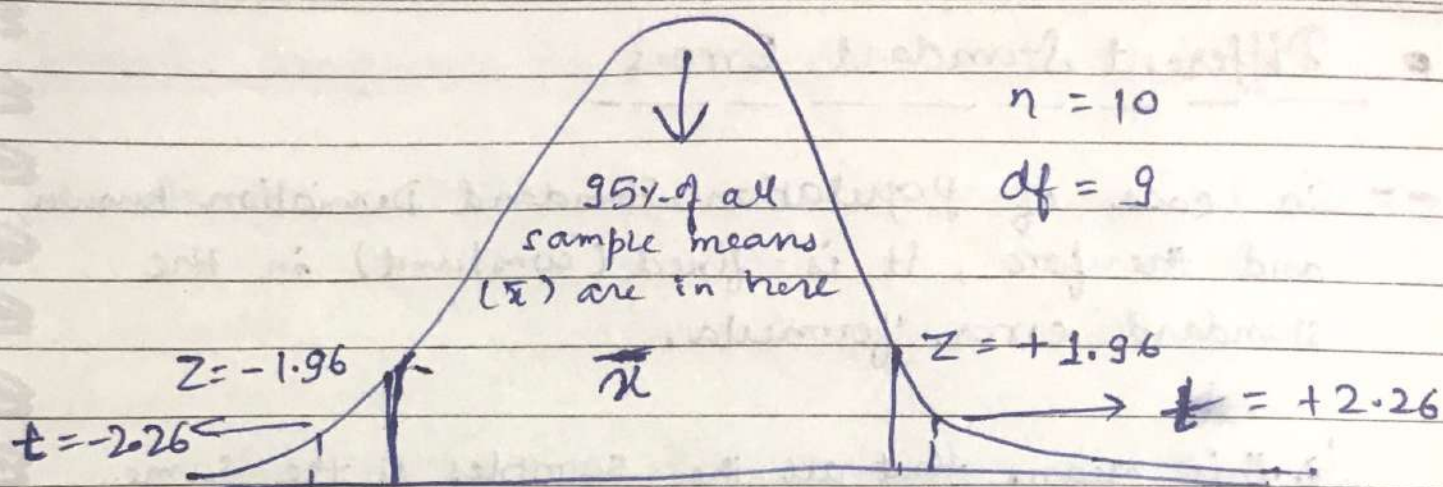 n = 10
df = 9
95% of all
sample means
(x̄) are in here
Z = -1.96
x̄
Z = +1.96
t = -2.26
t = +2.26